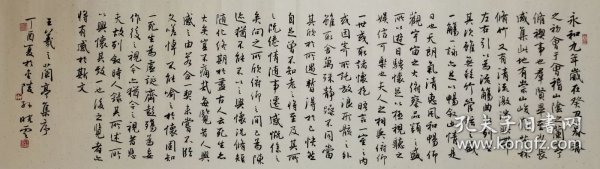 永和九年歲在癸丑暮春
之初會于會稽山陰之蘭亭
修禊事也群賢畢至少長
咸集此地有崇山峻嶺茂林
修竹又有清流激湍映帶
左右引以為流觴曲水列坐
其次雖無絲竹管弦之盛
一觴一詠亦足以暢敘幽情是
日也天朗氣清惠風和暢仰
觀宇宙之大俯察品類之盛
所以遊目騁懷足以極視聽之
娛信可樂也夫人之相與俯仰
一世或取諸懷抱晤言一室之內
或因寄所託放浪形骸之外
雖取舍萬殊靜躁不同當
其欣於所遇暫得於己快然
自足曾不知老之將至及其所
之既倦情隨事遷感慨係之
矣向之所欣俯仰之間已為陳
跡猶不能不以之興懷況修短
隨化終期於盡古人云死生亦
大矣豈不痛哉每覽昔人興
感之由若合一契未嘗不臨
文嗟悼不能喻之於懷固知
一死生為虛誕齊彭殤為妄
作後之視今亦由今之視昔悲
夫故列敘時人錄其所述
以興懷其致一也後之覽者亦
將有感於斯文
王羲之蘭亭集序
丁酉夏於金陵孫曉雲
孔夫子旧书网